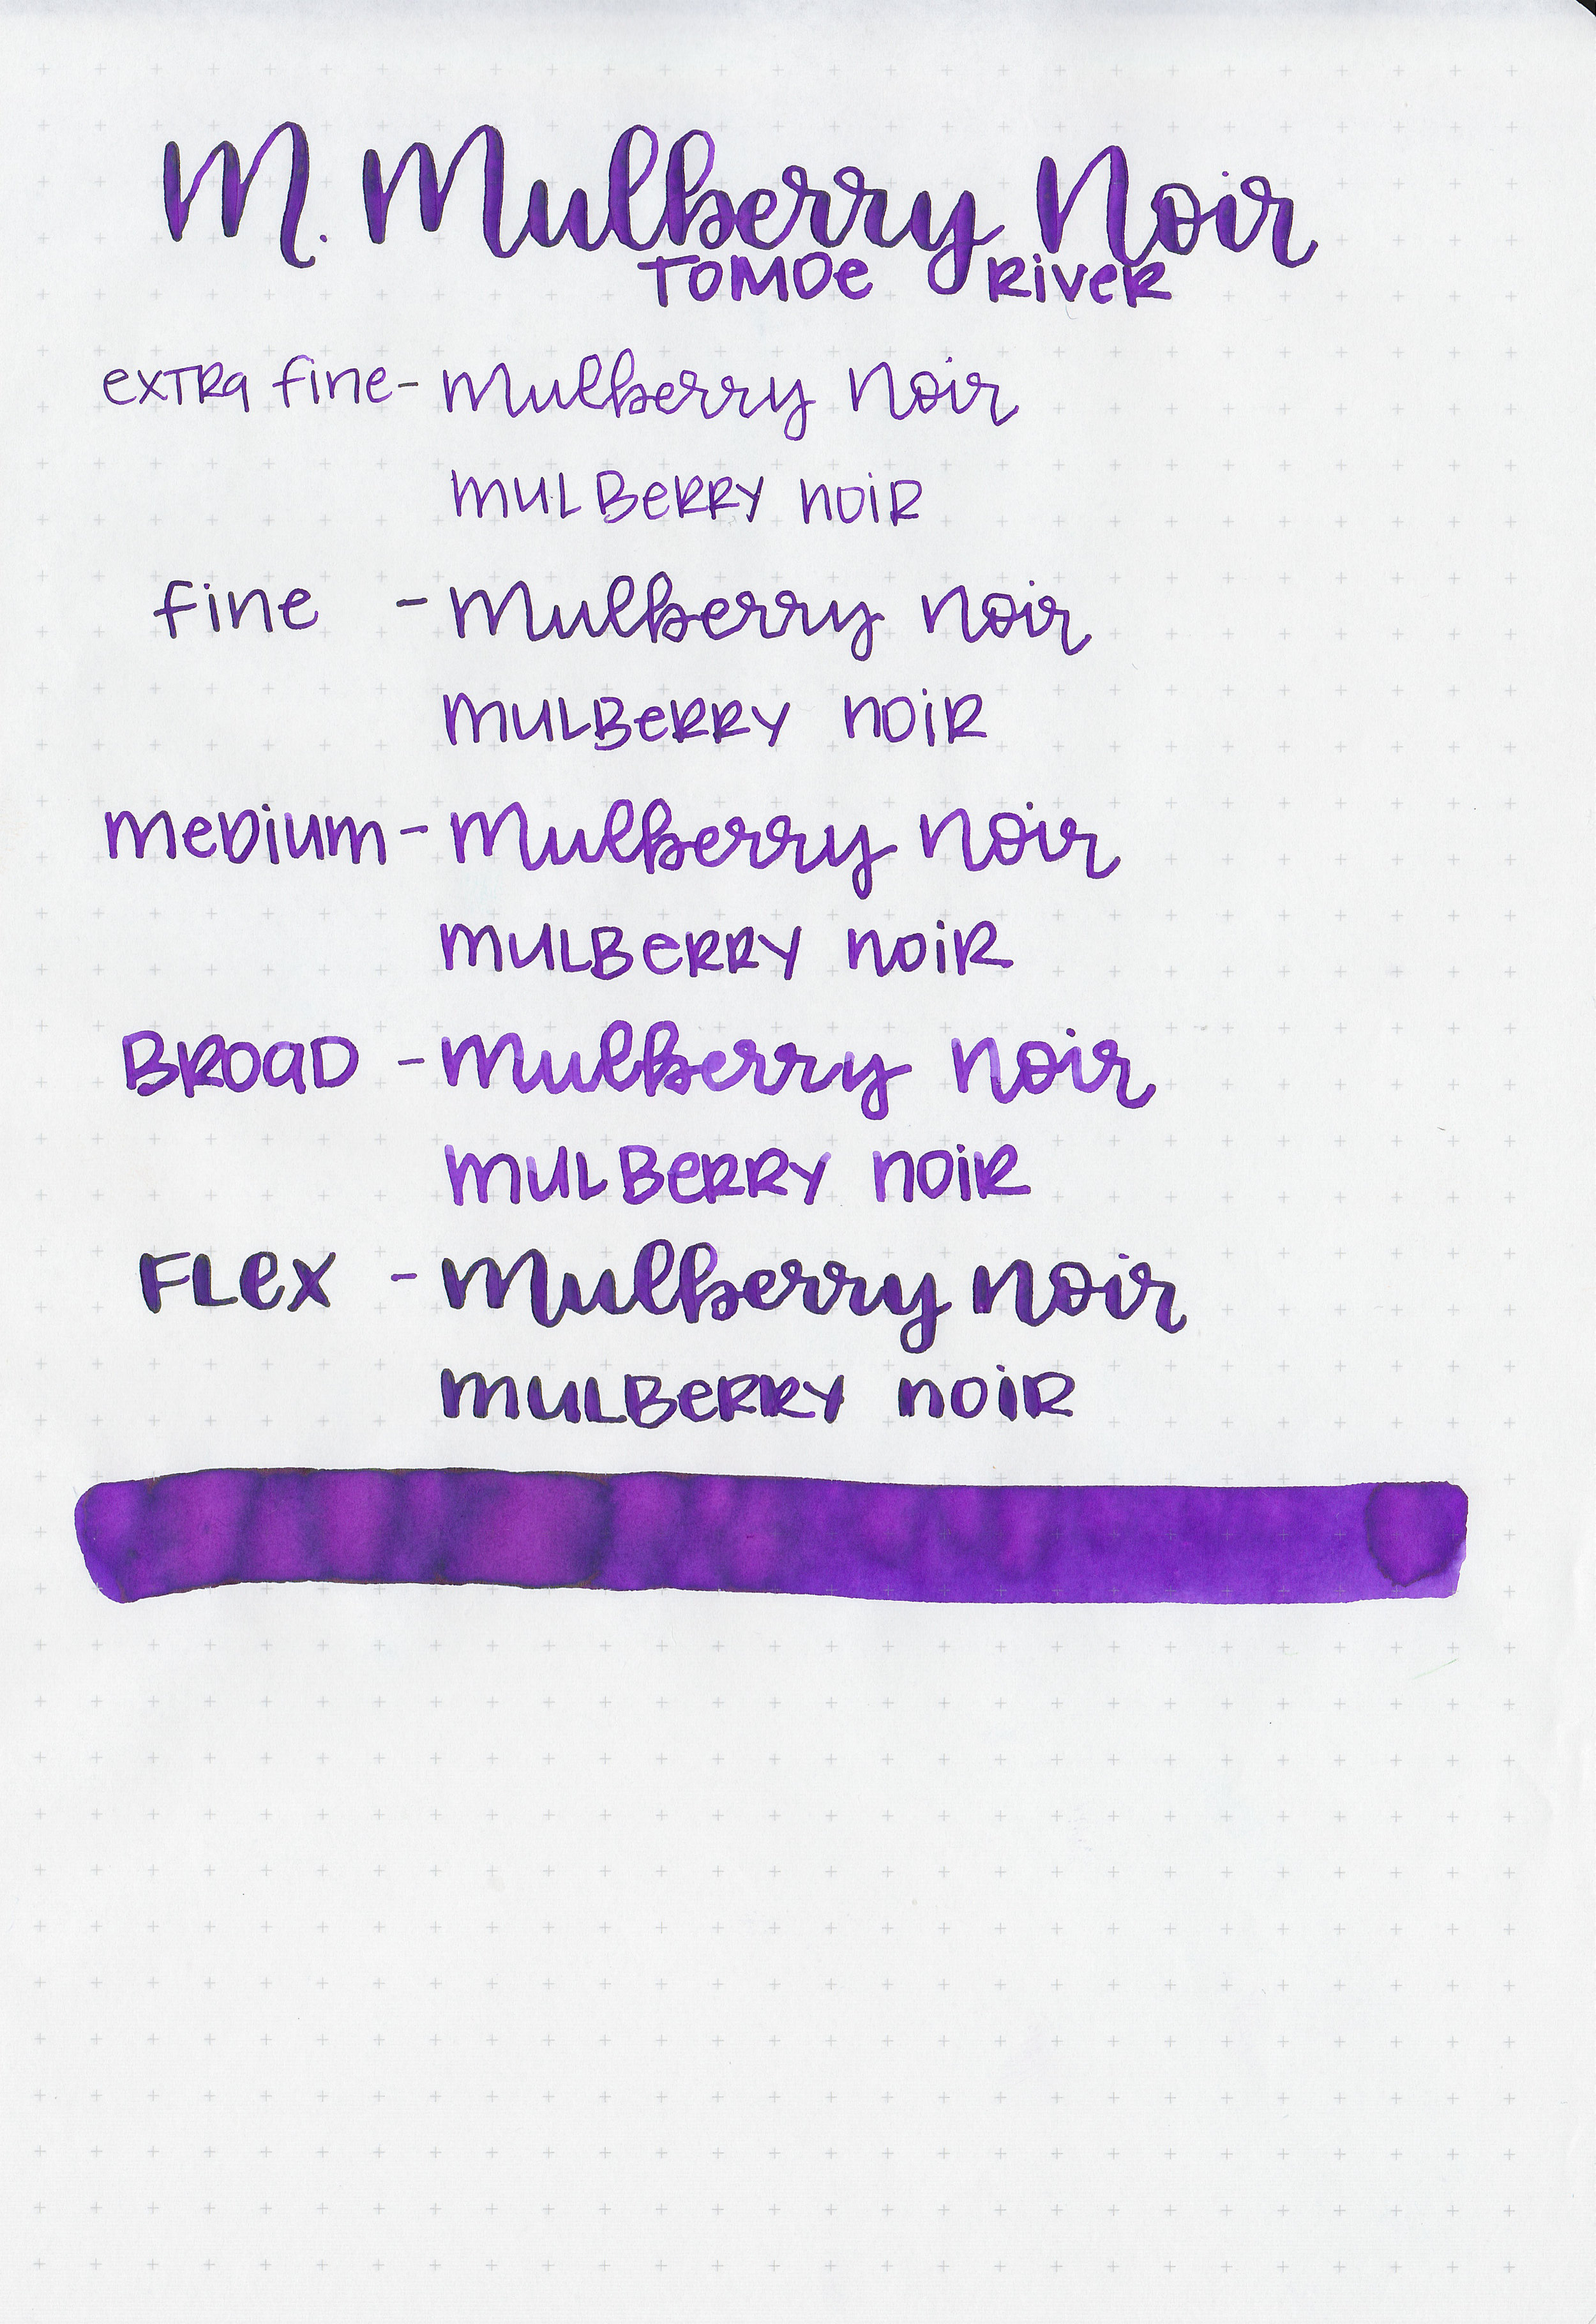 M. Mulberry Noir
TOMOe RiveR
exTRa fine - Mulberry Noir
MULBeRRY NOiR
fine - Mulberry Noir
MULBeRRY NOiR
MeDium - Mulberry Noir
MULBeRRY NOiR
BROaD - Mulberry Noir
MULBeRRY NOiR
FLex - Mulberry Noir
MULBeRRY NOiR